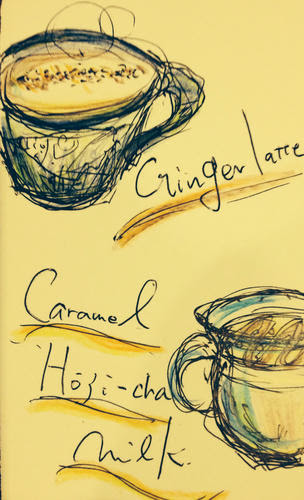 Ginger latte
Caramel
Hōji-cha
milk.